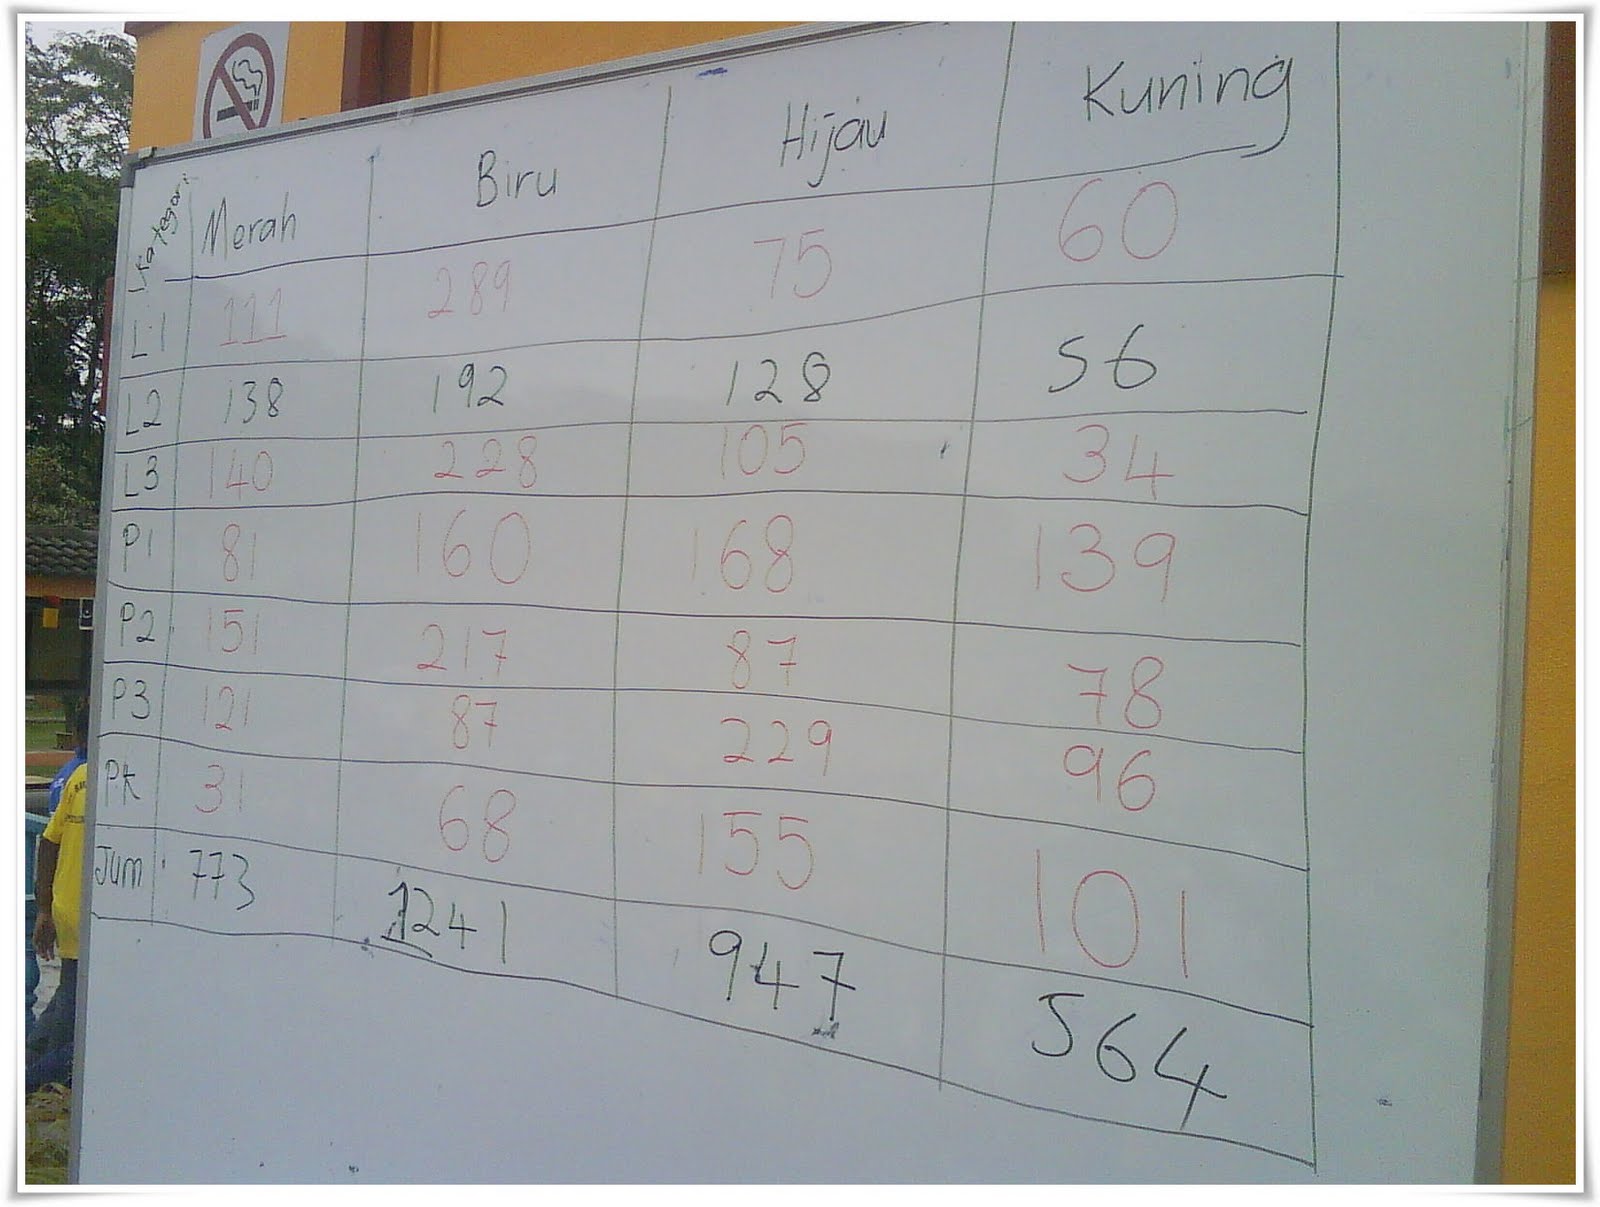 Kategori Merah Biru Hijau Kuning
L1 111 289 75 60
L2 138 192 128 56
L3 140 228 105 34
P1 81 160 168 139
P2 151 217 87 78
P3 121 87 229 96
PK 31 68 155 101
Jum 773 1241 947 564